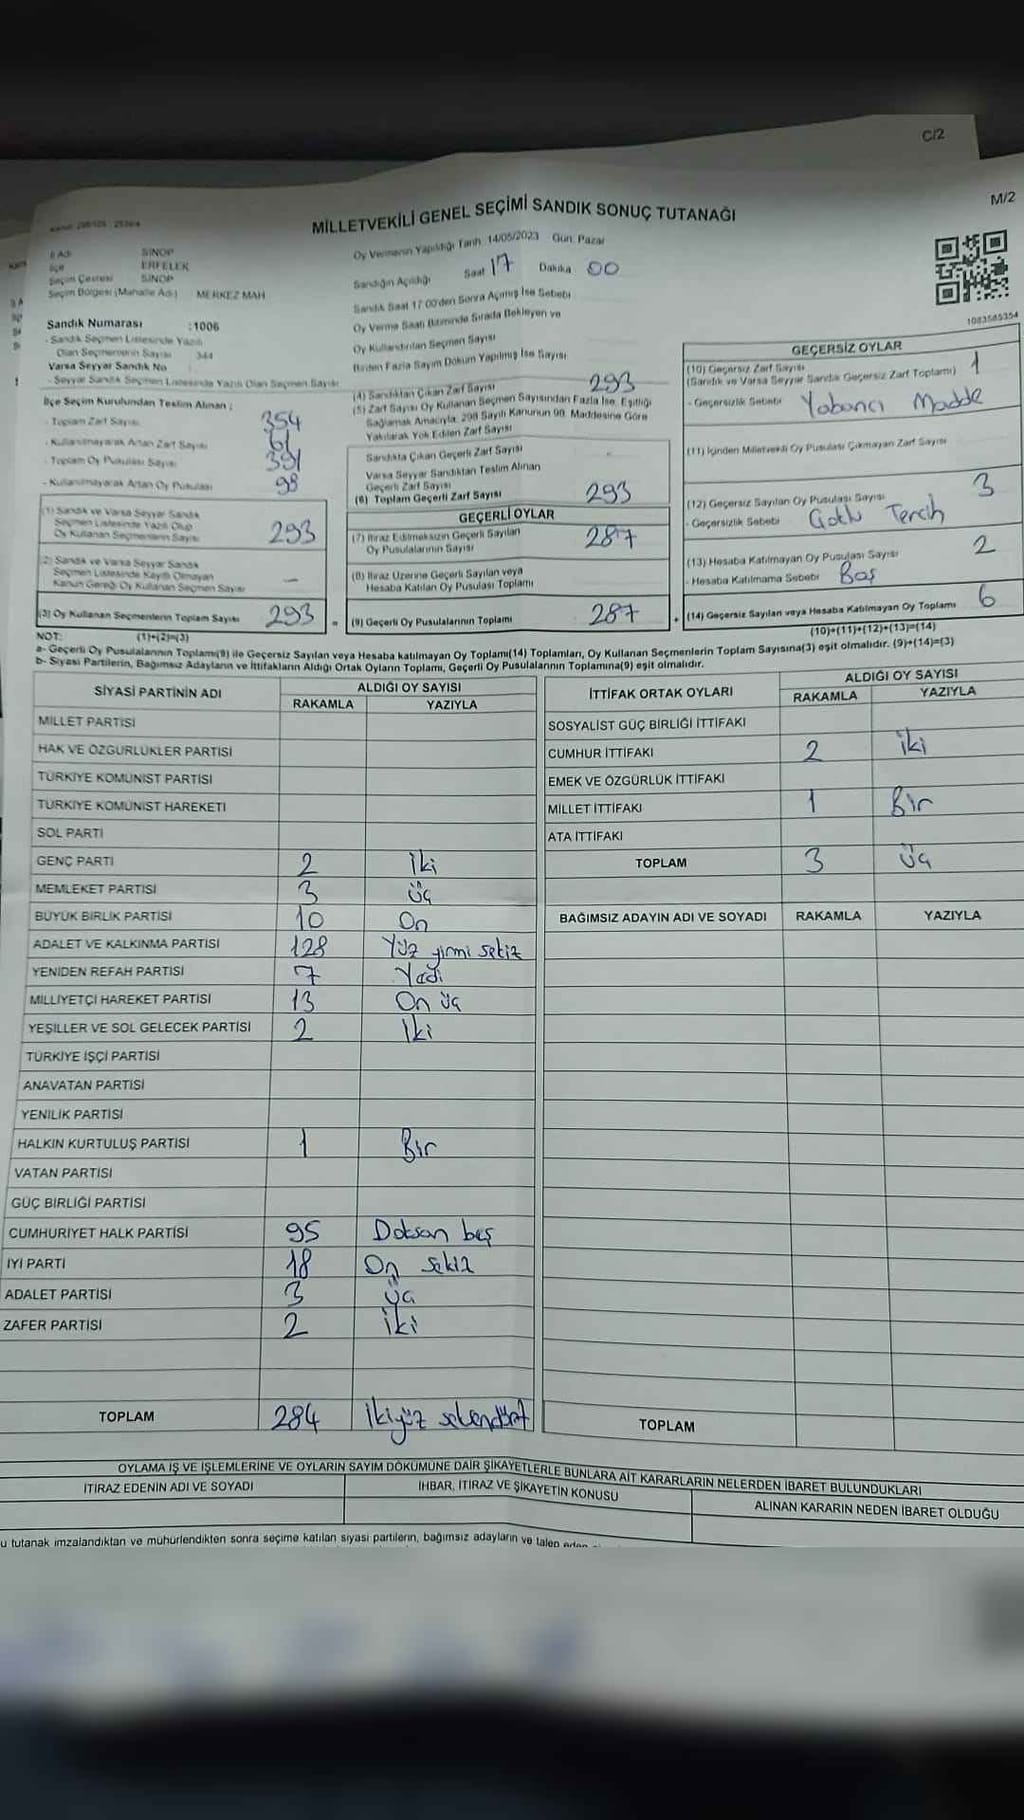 C/2
M/2
MİLLETVEKİLİ GENEL SEÇİMİ SANDIK SONUÇ TUTANAĞI
İl Adı SİNOP
İlçe ERFELEK
Seçim Çevresi SİNOP
Seçim Bölgesi (Mahalle Adı) MERKEZ MAH
Sandık Numarası :1006
- Sandık Seçmen Listesinde Yazılı
Olan Seçmenlerin Sayısı 344
Varsa Seyyar Sandık No
- Seyyar Sandık Seçmen Listesinde Yazılı Olan Seçmen Sayısı
İlçe Seçim Kurulundan Teslim Alınan ;
- Toplam Zarf Sayısı 354
- Kullanılmayarak Artan Zarf Sayısı 61
- Toplam Oy Pusulası Sayısı 391
- Kullanılmayarak Artan Oy Pusulası 98
(1) Sandık ve Varsa Seyyar Sandık
Seçmen Listesinde Yazılı Olup
Oy Kullanan Seçmenlerin Sayısı 293
(2) Sandık ve Varsa Seyyar Sandık
Seçmen Listesinde Kayıtlı Olmayan
Kanun Gereği Oy Kullanan Seçmen Sayısı —
(3) Oy Kullanan Seçmenlerin Toplam Sayısı 293 =
Oy Vermenin Yapıldığı Tarih 14/05/2023 Gün: Pazar
Sandığın Açıldığı Saat 17 Dakika 00
Sandık Saat 17:00'den Sonra Açılmış İse Sebebi
Oy Verme Saati Bitiminde Sırada Bekleyen ve
Oy Kullandırılan Seçmen Sayısı
Birden Fazla Sayım Döküm Yapılmış İse Sayısı
(4) Sandıktan Çıkan Zarf Sayısı 293
(5) Zarf Sayısı Oy Kullanan Seçmen Sayısından Fazla İse, Eşitliği
Sağlamak Amacıyla, 298 Sayılı Kanunun 98. Maddesine Göre
Yakılarak Yok Edilen Zarf Sayısı
Sandıkta Çıkan Geçerli Zarf Sayısı
Varsa Seyyar Sandıktan Teslim Alınan
Geçerli Zarf Sayısı
(6) Toplam Geçerli Zarf Sayısı 293
GEÇERLİ OYLAR
(7) İtiraz Edilmeksizin Geçerli Sayılan
Oy Pusulalarının Sayısı 287
(8) İtiraz Üzerine Geçerli Sayılan veya
Hesaba Katılan Oy Pusulası Toplamı
(9) Geçerli Oy Pusulalarının Toplamı 287 +
1083585354
GEÇERSİZ OYLAR
(10) Geçersiz Zarf Sayısı
(Sandık ve Varsa Seyyar Sandık Geçersiz Zarf Toplamı) 1
- Geçersizlik Sebebi Yabancı Madde
(11) İçinden Milletvekili Oy Pusulası Çıkmayan Zarf Sayısı
(12) Geçersiz Sayılan Oy Pusulası Sayısı 3
- Geçersizlik Sebebi Çoklu Tercih
(13) Hesaba Katılmayan Oy Pusulası Sayısı 2
- Hesaba Katılmama Sebebi Boş
(14) Geçersiz Sayılan veya Hesaba Katılmayan Oy Toplamı 6
(10)+(11)+(12)+(13)=(14)
NOT: (1)+(2)=(3)
a- Geçerli Oy Pusulalarının Toplamı(9) ile Geçersiz Sayılan veya Hesaba katılmayan Oy Toplamı(14) Toplamları, Oy Kullanan Seçmenlerin Toplam Sayısına(3) eşit olmalıdır. (9)+(14)=(3)
b- Siyasi Partilerin, Bağımsız Adayların ve İttifakların Aldığı Ortak Oyların Toplamı, Geçerli Oy Pusulalarının Toplamına(9) eşit olmalıdır.
SİYASİ PARTİNİN ADI ALDIĞI OY SAYISI
RAKAMLA YAZIYLA
MİLLET PARTİSİ
HAK VE ÖZGÜRLÜKLER PARTİSİ
TÜRKİYE KOMÜNİST PARTİSİ
TÜRKİYE KOMÜNİST HAREKETİ
SOL PARTİ
GENÇ PARTİ 2 İki
MEMLEKET PARTİSİ 3 üç
BÜYÜK BİRLİK PARTİSİ 10 On
ADALET VE KALKINMA PARTİSİ 128 Yüz yirmi sekiz
YENİDEN REFAH PARTİSİ 7 Yedi
MİLLİYETÇİ HAREKET PARTİSİ 13 On üç
YEŞİLLER VE SOL GELECEK PARTİSİ 2 İki
TÜRKİYE İŞÇİ PARTİSİ
ANAVATAN PARTİSİ
YENİLİK PARTİSİ
HALKIN KURTULUŞ PARTİSİ 1 Bir
VATAN PARTİSİ
GÜÇ BİRLİĞİ PARTİSİ
CUMHURİYET HALK PARTİSİ 95 Doksan beş
İYİ PARTİ 18 On sekiz
ADALET PARTİSİ 3 üç
ZAFER PARTİSİ 2 iki
TOPLAM 284 İkiyüz seksendört
İTTİFAK ORTAK OYLARI ALDIĞI OY SAYISI
RAKAMLA YAZIYLA
SOSYALİST GÜÇ BİRLİĞİ İTTİFAKI
CUMHUR İTTİFAKI 2 iki
EMEK VE ÖZGÜRLÜK İTTİFAKI
MİLLET İTTİFAKI 1 Bir
ATA İTTİFAKI
TOPLAM 3 üç
BAĞIMSIZ ADAYIN ADI VE SOYADI RAKAMLA YAZIYLA
TOPLAM
OYLAMA İŞ VE İŞLEMLERİNE VE OYLARIN SAYIM DÖKÜMÜNE DAİR ŞİKAYETLERLE BUNLARA AİT KARARLARIN NELERDEN İBARET BULUNDUKLARI
İTİRAZ EDENİN ADI VE SOYADI İHBAR, İTİRAZ VE ŞİKAYETİN KONUSU ALINAN KARARIN NEDEN İBARET OLDUĞU
u tutanak imzalandıktan ve mühürlendikten sonra seçime katılan siyasi partilerin, bağımsız adayların ve talep eden